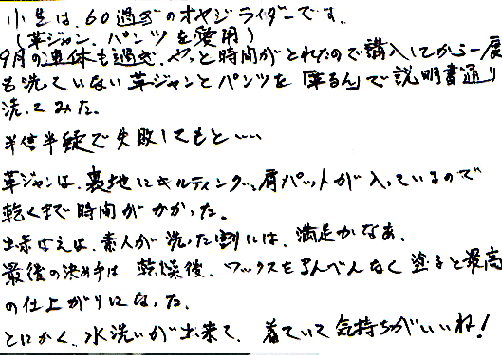 小生は、60過ぎのオヤジライダーです。
(革ジャン、パンツを愛用)
9月の連休も過ぎ、やっと時間がとれたので購入してから一度
も洗っていない革ジャンとパンツを「革るん」で説明書通り
洗ってみた。
半信半疑で失敗してもと‥‥
革ジャンは、裏地にキルティング、肩パットが入っているので
乾くまで時間がかかった。
出来ばえは、素人が洗った割には、満足かなあ。
最後の決め手は乾燥後、ワックスをまんべんなく塗ると最高
の仕上がりになった。
とにかく、水洗いが出来て、着ていて気持ちがいいね!